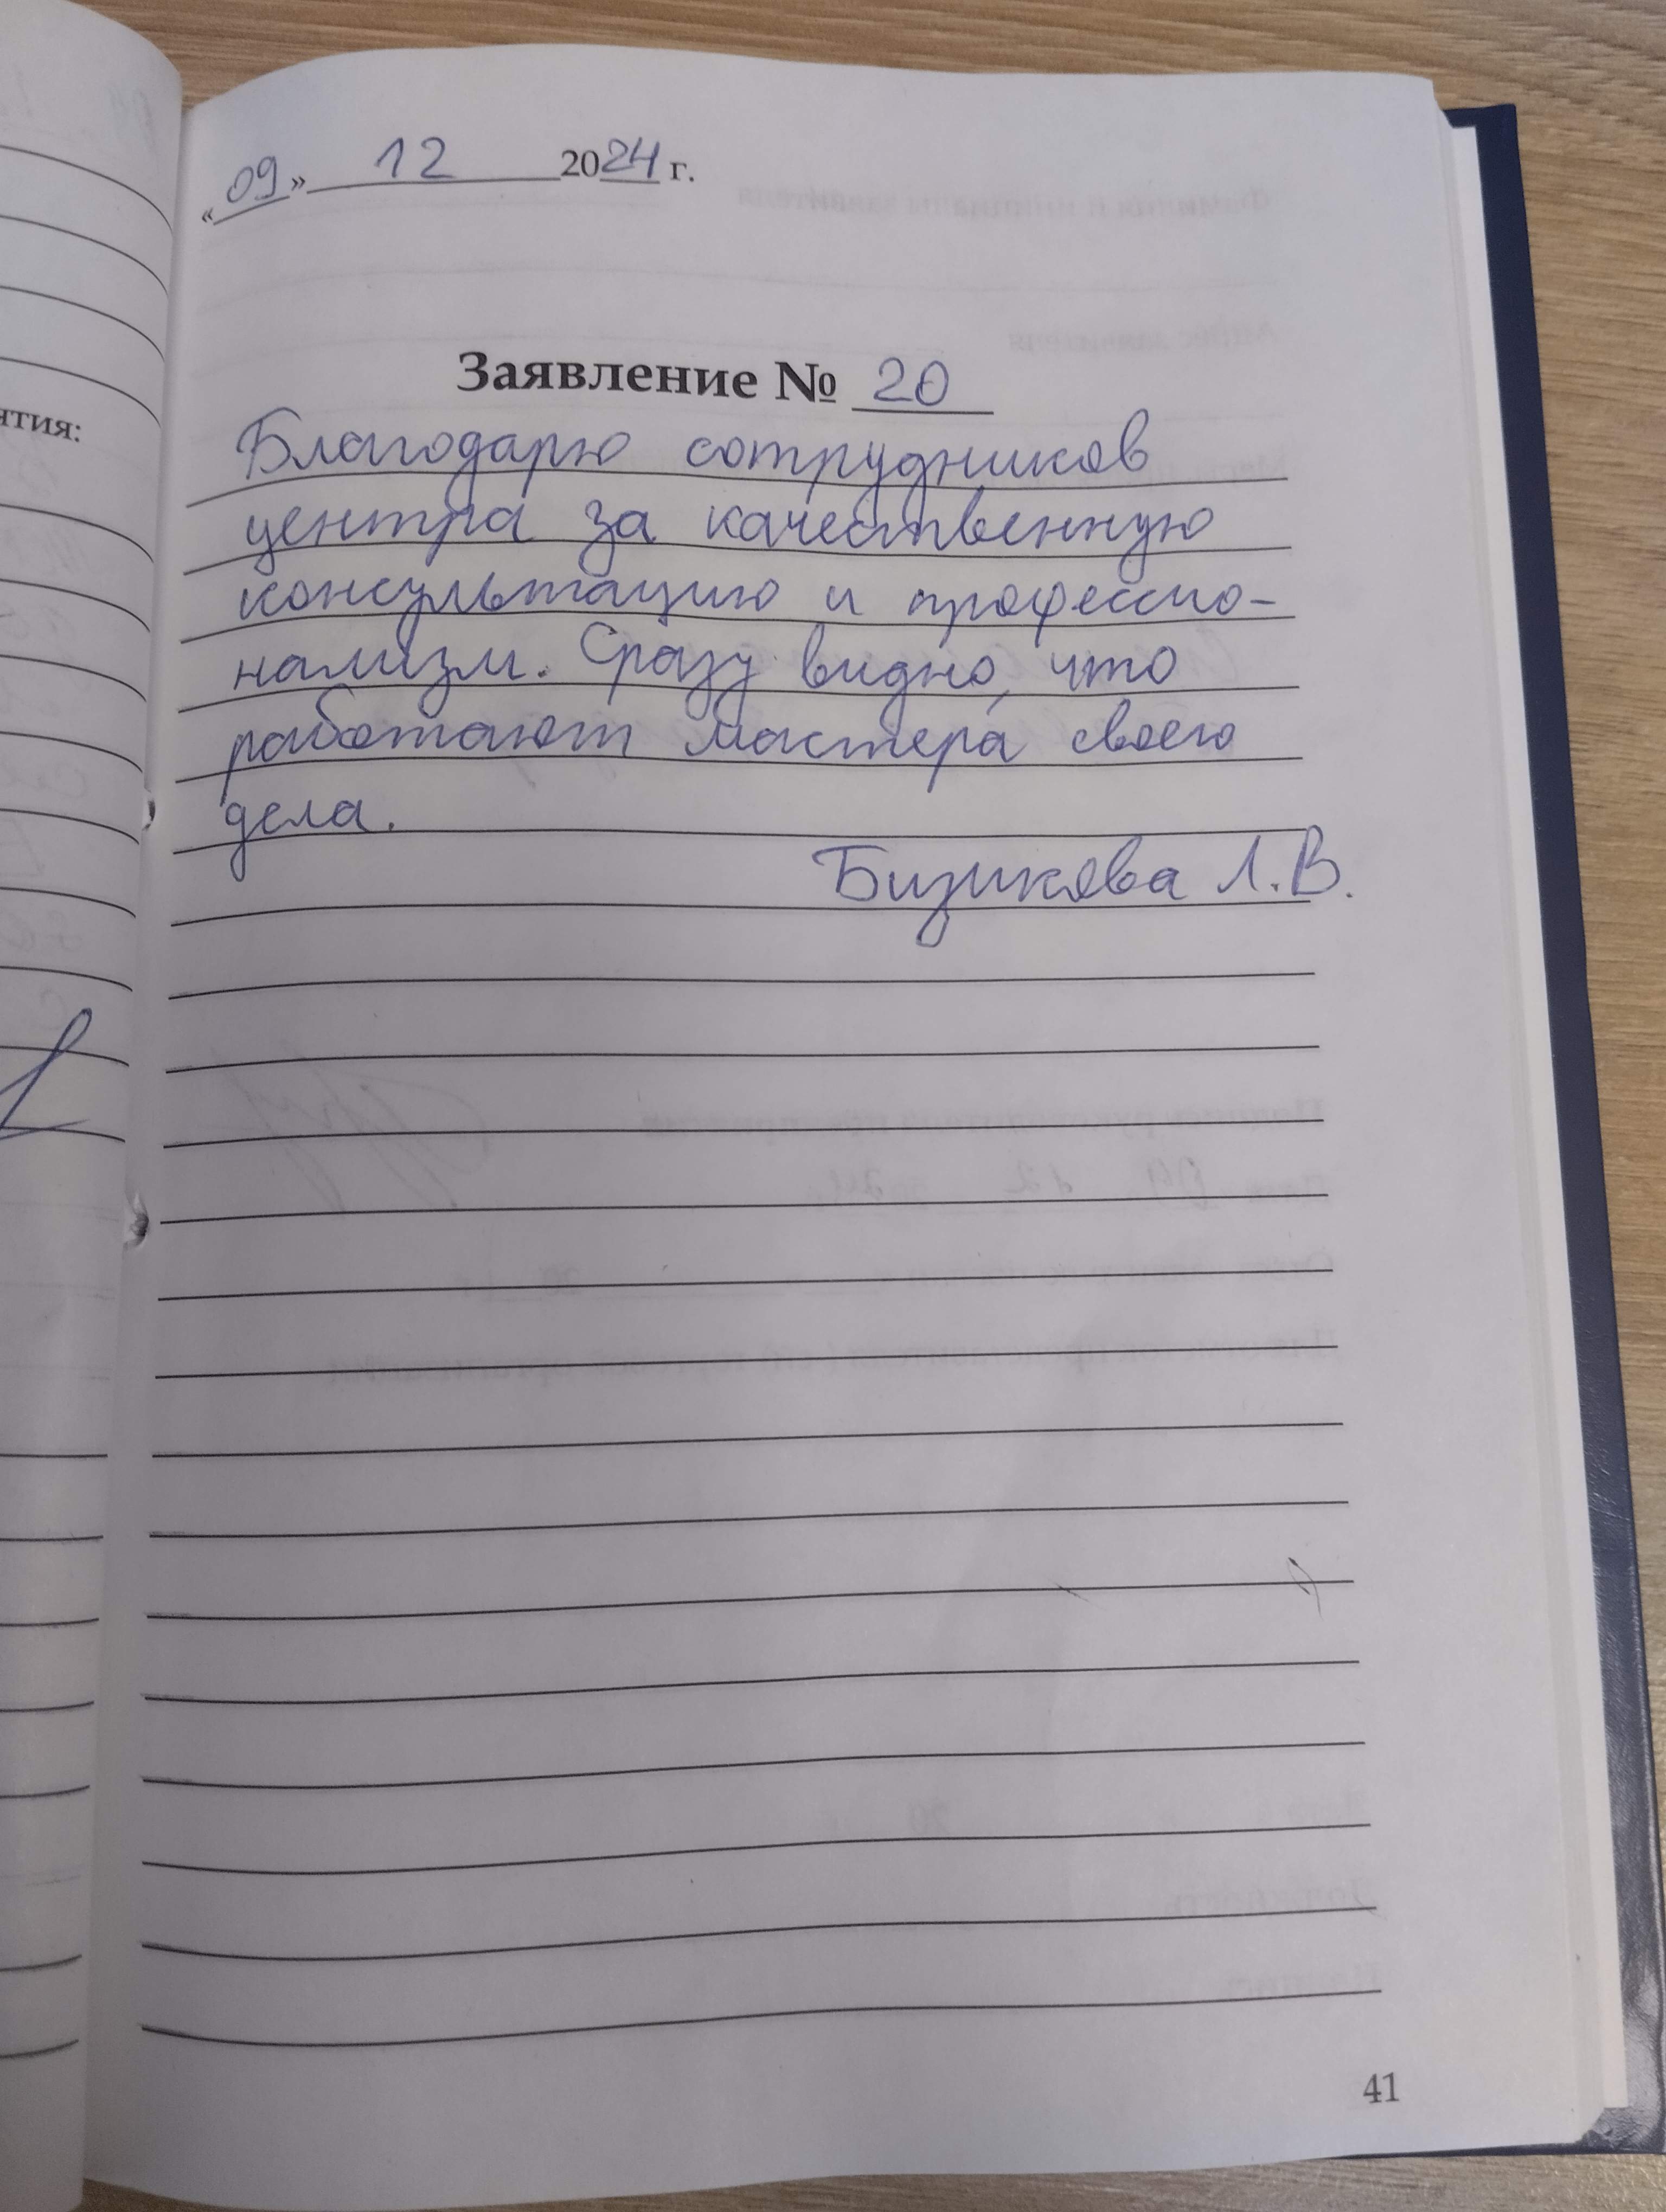 «09» 12 2024 г.
Заявление № 20
Благодарю сотрудников
центра за качественную
консультацию и профессио-
нализм. Сразу видно, что
работают мастера своего
дела.
Бизикова Л.В.
ятия:
41